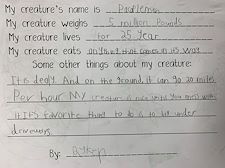 My creature's name is
My creature weighs 5 million Pounds
My creature lives for 25 Year
My creature eats anything that comes in its way
Some other things about my creature:
It is deadly. And on the ground it can go 20 miles
Per hour MY creature is nice until you mess with
it ITS favorite thing to do is to lay under
driveways.
By: